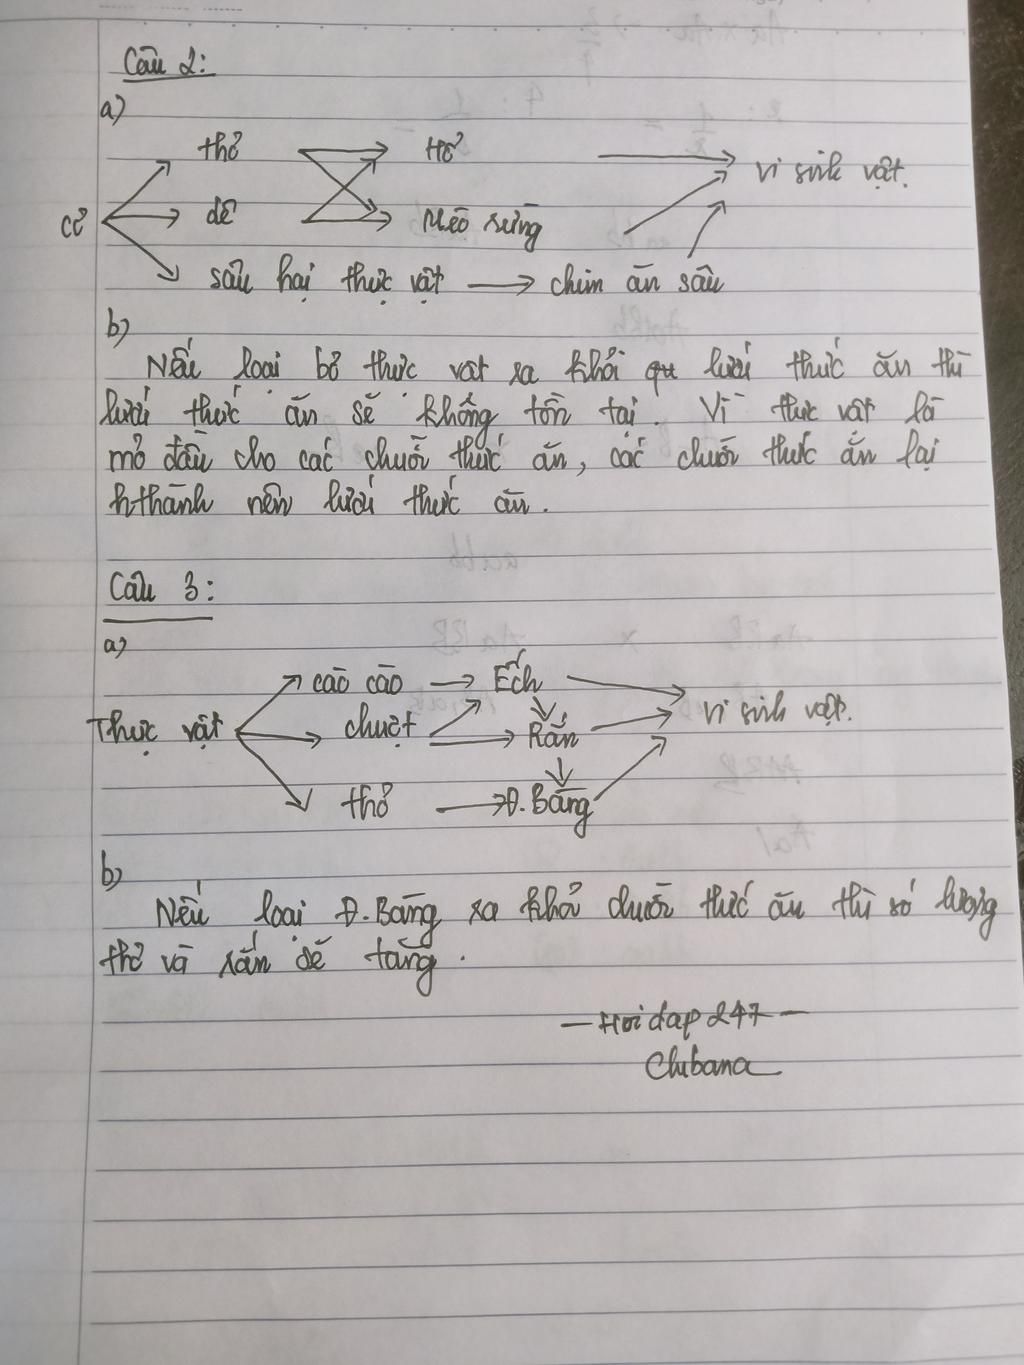 Câu 2:
a)
thỏ Hổ
vi sinh vật.
cỏ dê Mèo rừng
sâu hại thực vật chim ăn sâu
b)
Nếu loại bỏ thực vật ra khỏi lưới thức ăn thì
lưới thức ăn sẽ không tồn tại. Vì thực vật là
mở đầu cho các chuỗi thức ăn, các chuỗi thức ăn lại
hthành nên lưới thức ăn.
Câu 3:
a)
cào cào Ếch
Thực vật chuột Rắn vi sinh vật.
thỏ Đ.Bàng
b)
Nếu loại Đ.Bàng ra khỏi chuỗi thức ăn thì số lượng
thỏ và rắn sẽ tăng.
— Hoidap247 —
Chibana